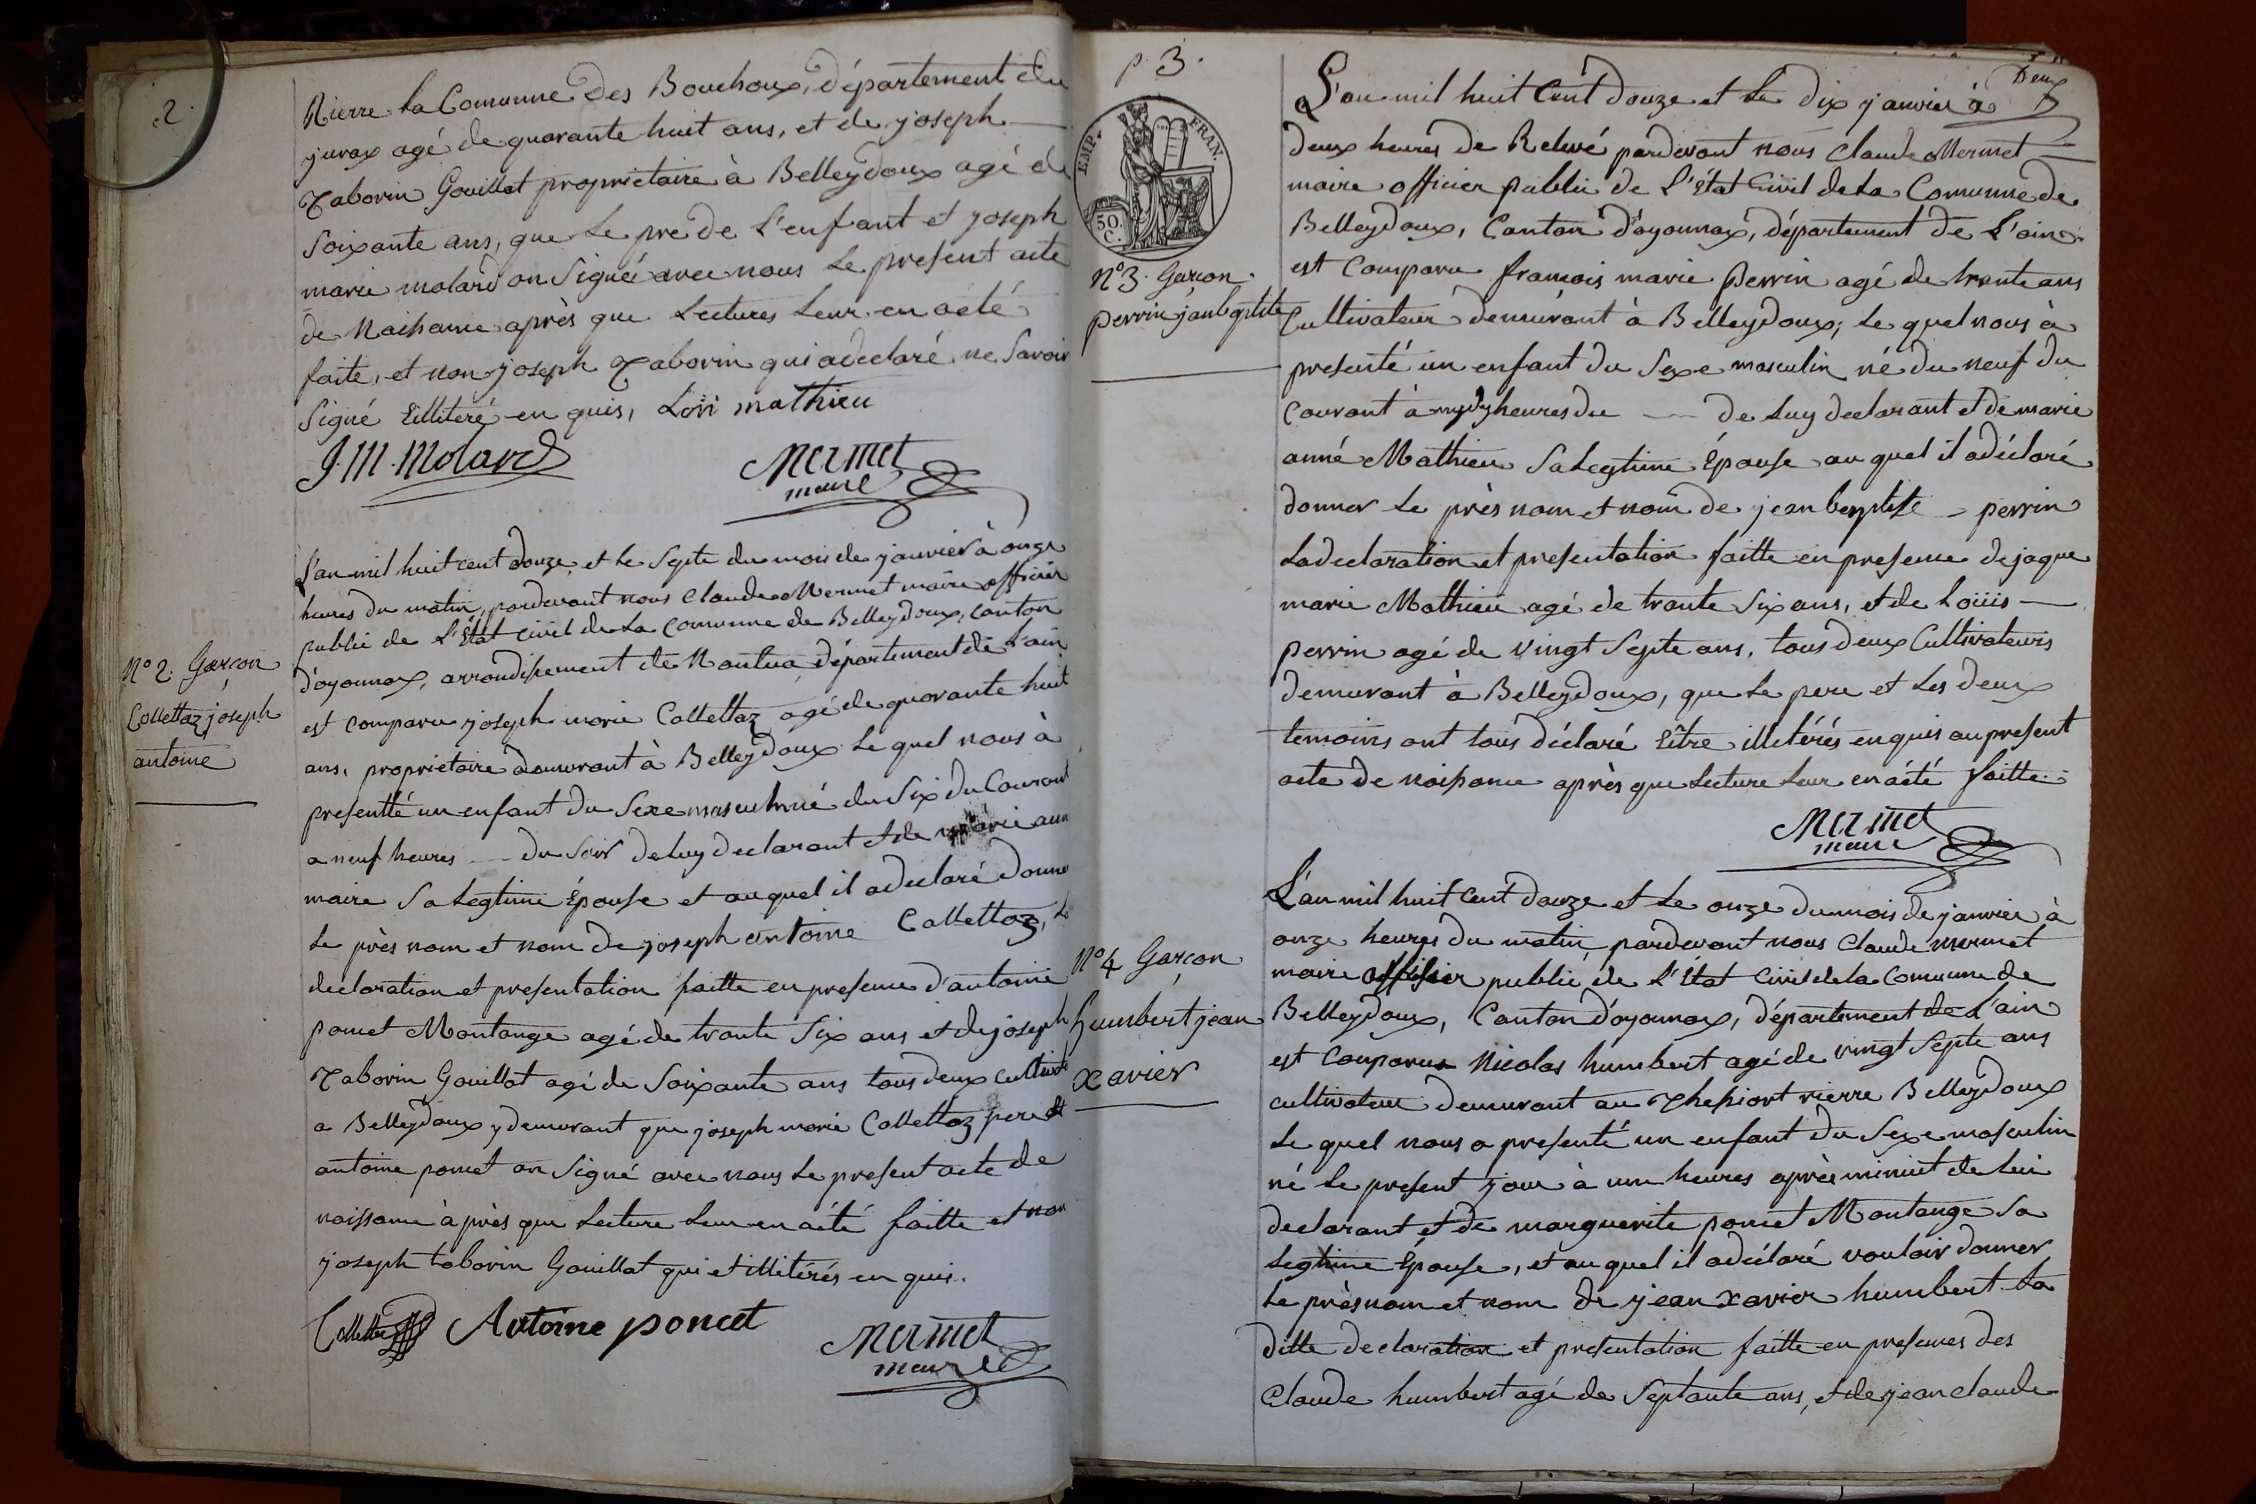 .2.
Rierre la Comunne des Bouchoux, département du
jurax agé de quarante huit ans, et de joseph
Taborin Gouillot proprietaire à Belleydoux agé de
Soixante ans, que le pre de l'enfant et joseph
marie molard on Signéé avec nous le present acte
de Naisance après que lectures leur en aété
faite, et non joseph Taborin qui adeclaré ne Savoir
Signé Eilliteré en quis, Loii mathieu
J. M. Molard
Mermet
maire
N° 2. Garçon
Collettaz joseph
antoine
L'an mil huit cent douze, et le Septe du mois de janvier à onze
heures du matin, pardevant nous Claude Mermet maire officier
public de L'État civil de la Comunne de Belleydoux, canton
d'oyonnax, arrondissement de Nantua, département de L'ain
est comparu joseph marie Collettaz agé de quarante huit
ans, proprietaire demurant à Belleydoux le quel nous à
presentté un enfant du Sexe masculin né du Six du Courant
a neuf heures du Soir de luy declarant et de marie ann
maire Sa Legtime Épouse et auquel il adeclaré donner
le près nom et nom de joseph antoine Collettaz, la
declaration et presentation faitte en presence d'antoine
poncet Montange agé de trante Six ans et de joseph
Taborin Gouillot agé de Soixante ans tous deux cultivat
a Belleydoux y demurant que joseph marie Collettaz pere et
antoine poncet on Signé avec nous le present acte de
naissance à près que lecture leur en aété faitte et non
joseph taborin Gouillot qui et illitérés en quis.
Collettaz Antoine poncet
Mermet
maire
p. 3.
Deux
EMP. FRAN.
50.
C.
N° 3. Garçon
perrin jan baptiste
L'an mil huit Cent douze et Le dix janvier à
deux heures de Relevé pardevant nous Claude Mermet
maire officier public de L'État Civil de La Comunne de
Belleydoux, Canton d'oyonnax, département de L'ain
est Comparu francois marie Perrin agé de trante ans
Cultivateur demurant à Belleydoux, le quel nous à
presenté un enfant du Sexe masculin né du neuf du
Courant à mydy heures du de luy declarant et de marie
anne Mathieu Sa Legtime Épouse au quel il adéclaré
donner le près nom et nom de jean beyptiste perrin
La declaration et presentation faitte en presence de jaque
marie Mathieu agé de trante Six ans, et de Loüis
perrin agé de vingt Septe ans, tous deux Cultivateurs
demurant à Belleydoux, que le pere et les deux
temoins ont tous déclaré Eître illetérés enquis au present
acte de naissance après que Lecture leur en aété faitte.
Mermet
maire
N° 4 Garçon
humbert jean
xavier
L'an mil huit Cent douze et le onze dumois de janvier à
onze heures du matin, pardevant nous Claude mermet
maire officier public de L'État Civil de la Comunne de
Belleydoux, Canton d'oyonnax, département de L'ain
est Comparus Nicolas humbert agé de vingt Septe ans
cultivateur demurant au rierre Belleydoux
Le quel nous a presenté un enfant du Sexe masculin
né le present jour à une heures après minuit de lui
declarant et de marguerite poncet Montange Sa
legtime Épouse, et au quel il adéclaré vouloir donner
Le prèsnom et nom de jean xavier humbert La
ditte declaration et presentation faitte en presences des
Claude humbert agé de Septante ans, et de jean claude